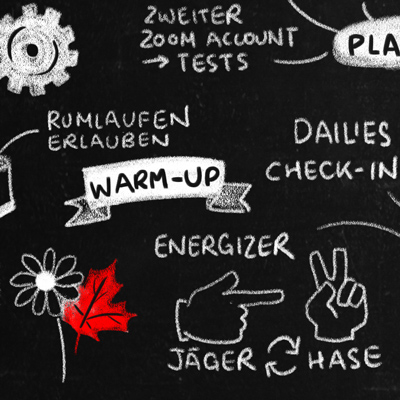 ZWEITER
ZOOM ACCOUNT
→ TESTS
PLA
RUMLAUFEN
ERLAUBEN
DAILIES
CHECK-IN
WARM-UP
ENERGIZER
JÄGER HASE